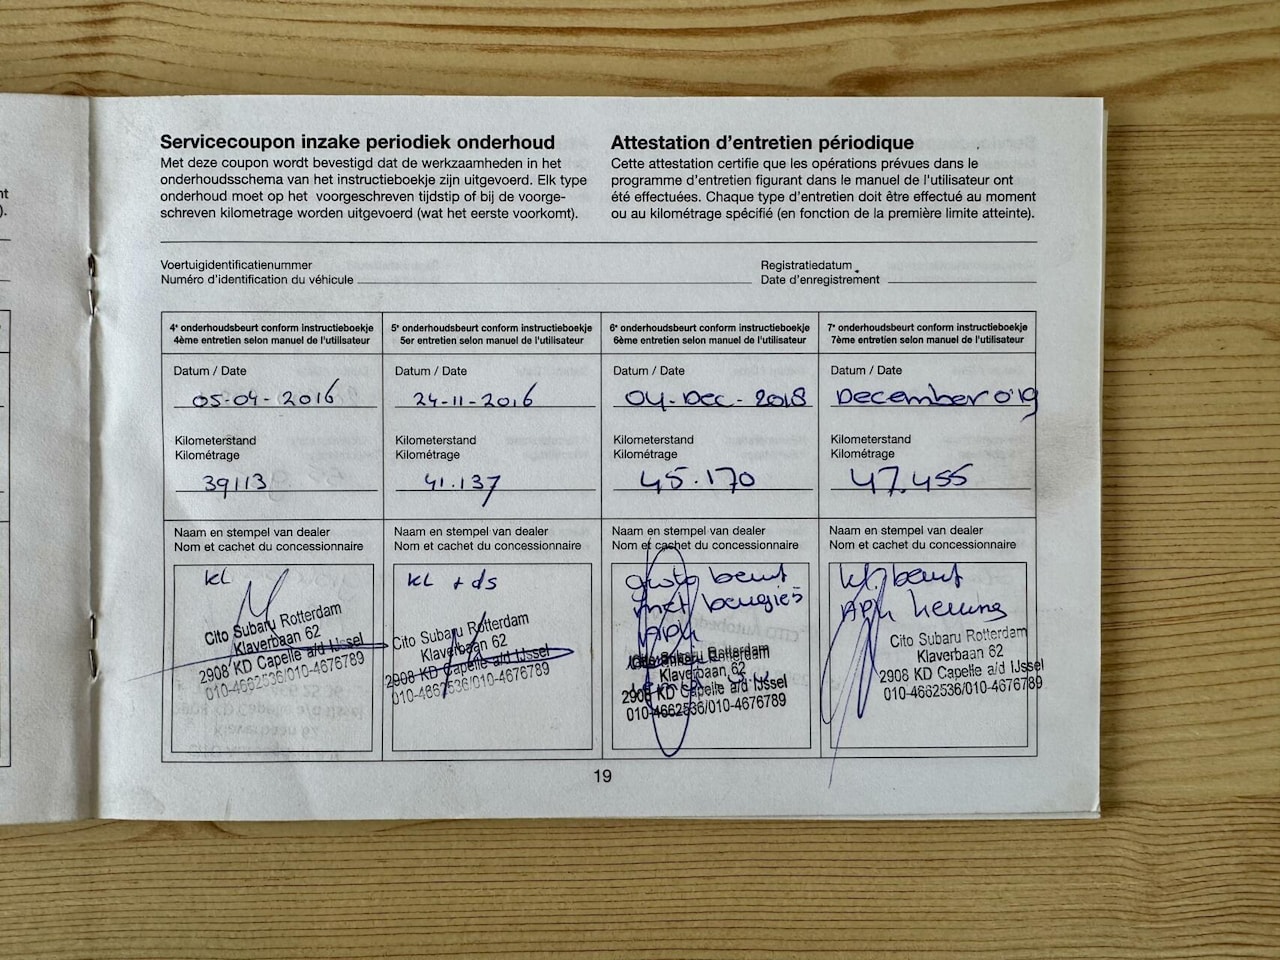 nt
).
Servicecoupon inzake periodiek onderhoud
Met deze coupon wordt bevestigd dat de werkzaamheden in het
onderhoudsschema van het instructieboekje zijn uitgevoerd. Elk type
onderhoud moet op het voorgeschreven tijdstip of bij de voorge-
schreven kilometrage worden uitgevoerd (wat het eerste voorkomt).
Attestation d'entretien périodique
Cette attestation certifie que les opérations prévues dans le
programme d'entretien figurant dans le manuel de l'utilisateur ont
été effectuées. Chaque type d'entretien doit être effectué au moment
ou au kilométrage spécifié (en fonction de la première limite atteinte).
Voertuigidentificatienummer
Numéro d'identification du véhicule
Registratiedatum
Date d'enregistrement
4e onderhoudsbeurt conform instructieboekje
4ème entretien selon manuel de l'utilisateur
Datum / Date
05-04-2016
Kilometerstand
Kilométrage
39113
Naam en stempel van dealer
Nom et cachet du concessionnaire
KL
Cito Subaru Rotterdam
Klaverbaan 62
2908 KD Capelle a/d IJssel
010-4662536/010-4676789
5e onderhoudsbeurt conform instructieboekje
5er entretien selon manuel de l'utilisateur
Datum / Date
24-11-2016
Kilometerstand
Kilométrage
41.137
Naam en stempel van dealer
Nom et cachet du concessionnaire
KL + ds
Cito Subaru Rotterdam
Klaverbaan 62
2908 KD Capelle a/d IJssel
010-4662536/010-4676789
6e onderhoudsbeurt conform instructieboekje
6ème entretien selon manuel de l'utilisateur
Datum / Date
04-Dec-2018
Kilometerstand
Kilométrage
45.170
Naam en stempel van dealer
Nom et cachet du concessionnaire
grote beurt
met bougies
APK
Subaru Rotterdam
Klaverbaan 62
2908 KD Capelle a/d IJssel
010-4662536/010-4676789
7e onderhoudsbeurt conform instructieboekje
7ème entretien selon manuel de l'utilisateur
Datum / Date
December 0'19
Kilometerstand
Kilométrage
47.455
Naam en stempel van dealer
Nom et cachet du concessionnaire
kl. beurt
APK keuring
Cito Subaru Rotterdam
Klaverbaan 62
2908 KD Capelle a/d IJssel
010-4662536/010-4676789
19